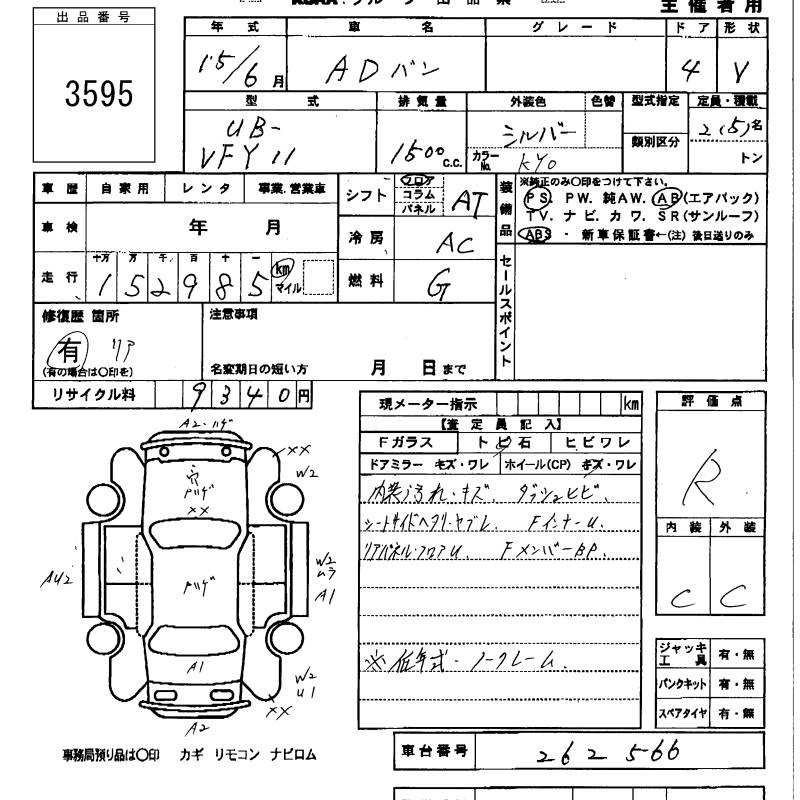 主催者用
出品番号
3595
年式 車名 グレード ドア 形状
15/6月 ADバン 4 V
型式 排気量 外装色 色替 型式指定 定員・積載
UB-
VFY11 1500 c.c. シルバー カラーNo. KY0 類別区分 2(5)名
トン
車歴 自家用 レンタ 事業.営業車
車検 年 月
走行 十万 万 千 百 十 一
152985 km マイル
シフト フロア コラム パネル AT
冷房 AC
燃料 G
装備品 ※純正のみ〇印をつけて下さい。
PS. PW. 純AW. AB(エアバック)
TV. ナビ. カワ. SR(サンルーフ)
ABS ・ 新車保証書←(注) 後日送りのみ
セールスポイント
修復歴 箇所
有 リア
(有の場合は〇印を)
注意事項
名変期日の短い方 月 日まで
リサイクル料 9340円
現メーター指示 km
【査定員記入】
Fガラス トビ石 ヒビワレ
ドアミラー キズ・ワレ ホイール(CP) キズ・ワレ
内装汚れ・キズ. ダッシュヒビ.
シートサイドヘタリ・ヤブレ. FインナーU.
リアパネル・フロアU. FメンバーBP.
※低年式・ノークレーム.
評価点
R
内装 外装
C C
ジャッキ工具 有・無
パンクキット 有・無
スペアタイヤ 有・無
A2・ハゲ
××
W2
穴
トハゲ
××
AU2
トハゲ
W2
ムラ
A1
A1
W2
U1
××
A2
事務局預り品は〇印 カギ リモコン ナビロム
車台番号 262566